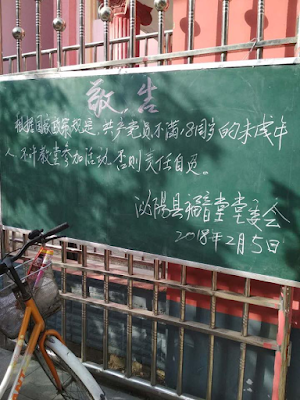 敬告
根据国家政策规定,共产党员,不满18周岁的未成年
人,不许教堂参加活动,否则责任自负。
泌阳县福音堂堂委会
2018年2月5日